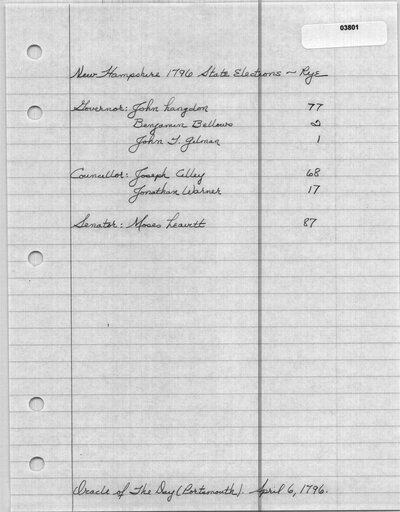 03801
New Hampshire 1796 State Elections ~ Rye
Governor: John Langdon 77
Benjamin Bellows 2
John T. Gilman 1
Councillor: Joseph Cilley 68
Jonathan Warner 17
Senator: Moses Leavitt 87
Oracle of The Day (Portsmouth). April 6, 1796.